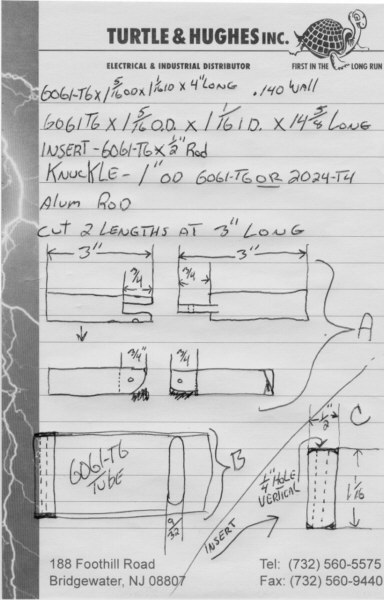 TURTLE & HUGHES INC.
ELECTRICAL & INDUSTRIAL DISTRIBUTOR
FIRST IN THE LONG RUN
6061-T6 x 1 5/16 OD x 1 1/16 ID x 4" LONG .140 WALL
6061 T6 x 1 5/16 O.D. x 1 1/16 I.D. x 14 5/8 LONG
INSERT - 6061-T6 x 1/2" Rod
KNUCKLE - 1" OD 6061-T6 OR 2024-T4
Alum Rod
CUT 2 LENGTHS AT 3" LONG
3" 3"
3/4 3/4
A
3/4" 3/4
C
1/2"
6061-T6
TUBE
B
1/4" HOLE
VERTICAL
1 1/16
9/32
INSERT
188 Foothill Road Tel: (732) 560-5575
Bridgewater, NJ 08807 Fax: (732) 560-9440